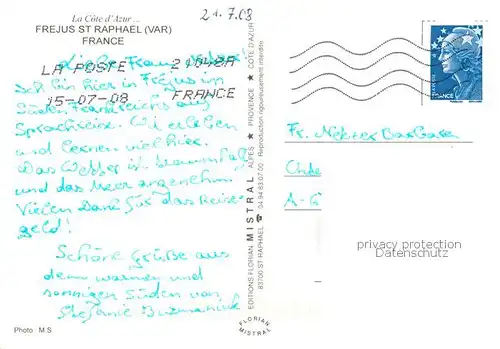 La Côte d'Azur...
FREJUS ST RAPHAEL (VAR)
FRANCE
21.7.08
LA POSTE 21042A
15-07-08 FRANCE
Liebe Frau
Ich bin hier in Frejus im
Süden Frankreichs auf
Sprachreise. Wir erleben
und lernen viel hier.
Das Wetter ist traumhaft
und das Meer angenehm.
Vielen Dank für das Reise-
geld!
Schöne Grüße aus
dem warmen und
sonnigen Süden von
Stefanie
Photo M.S.
EDITIONS FLORIAN MISTRAL ALPES ★ PROVENCE ★ CÔTE D'AZUR
83700 ST RAPHAEL ☎ 04 94 83 07 00 Reproduction rigoureusement interdite
FLORIAN
MISTRAL
FRANCE
Fr. Barbara
A-
privacy protection
Datenschutz